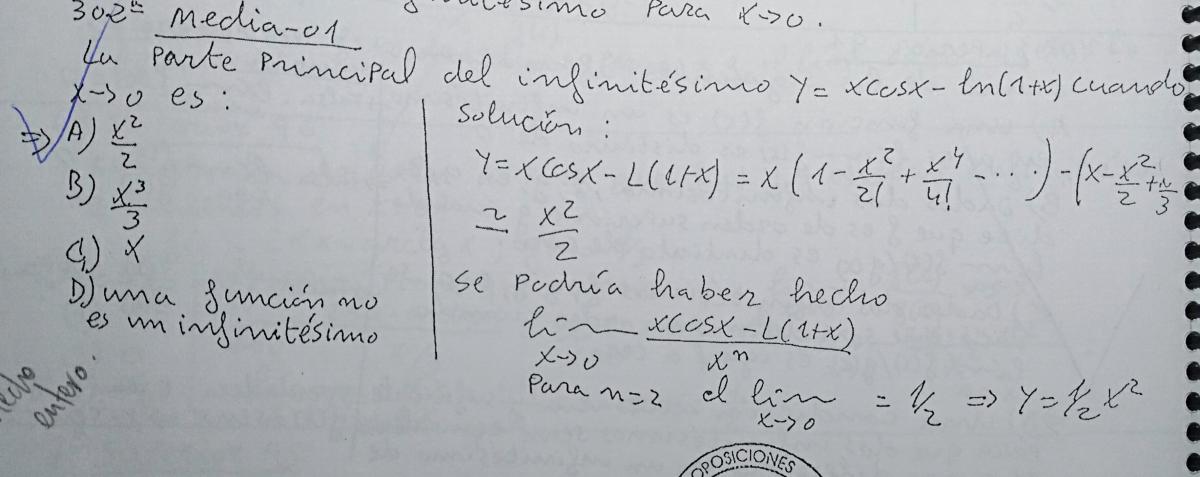 302ⁿ Media-01 para x→0.
La parte principal del infinitésimo y = xcosx - ln(1+x) cuando
x→0 es:
⇒ A) x²/2
B) x³/3
C) x
D) una función no
es un infinitésimo
Solución:
y = xcosx - L(1+x) = x(1 - x²/2! + x⁴/4! - ....) - (x - x²/2 +
≃ x²/2
Se podría haber hecho
lim x→0 xcosx - L(1+x) / xⁿ
Para n=2 el lim x→0 = 1/2 ⇒ y = 1/2 x²
entero.
OPOSICIONES